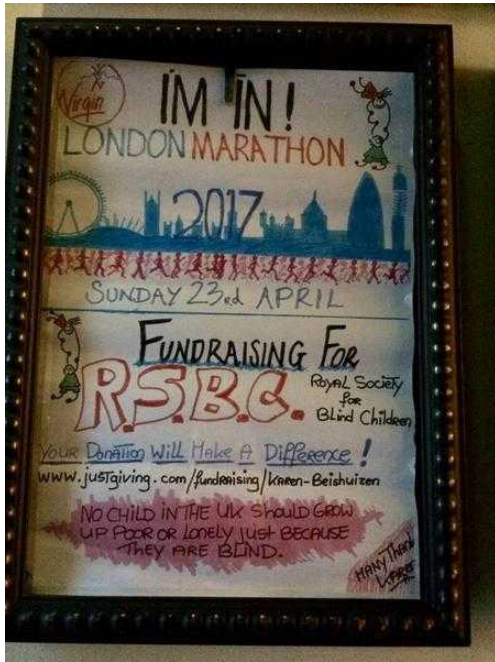 Virgin
I'M IN!
LONDON MARATHON
2017
SUNDAY 23rd APRIL
FUNDRAISING FOR
R.S.B.C.
ROYAL SOCIETY
for
BLIND CHILDREN
YOUR DONATION WILL MAKE A DIFFERENCE!
www.justgiving.com/fundraising/Karen-Beishuizen
NO CHILD IN THE UK SHOULD GROW
UP POOR OR LONELY JUST BECAUSE
THEY ARE BLIND.
MANY Thank
KAREN